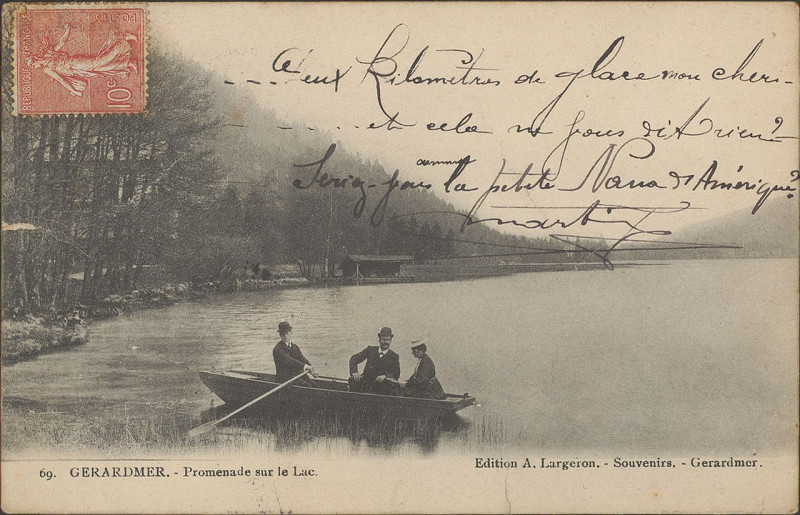 POSTES
REPUBLIQUE FRANÇAISE
10c
---- Deux Kilomètres de glace mon cheri-
---- et cela ne vous dit rien?
Seriez-vous comme la petite Nana d'Amérique?
Martin
69. GERARDMER. - Promenade sur le Lac.
Edition A. Largeron. - Souvenirs. - Gerardmer.